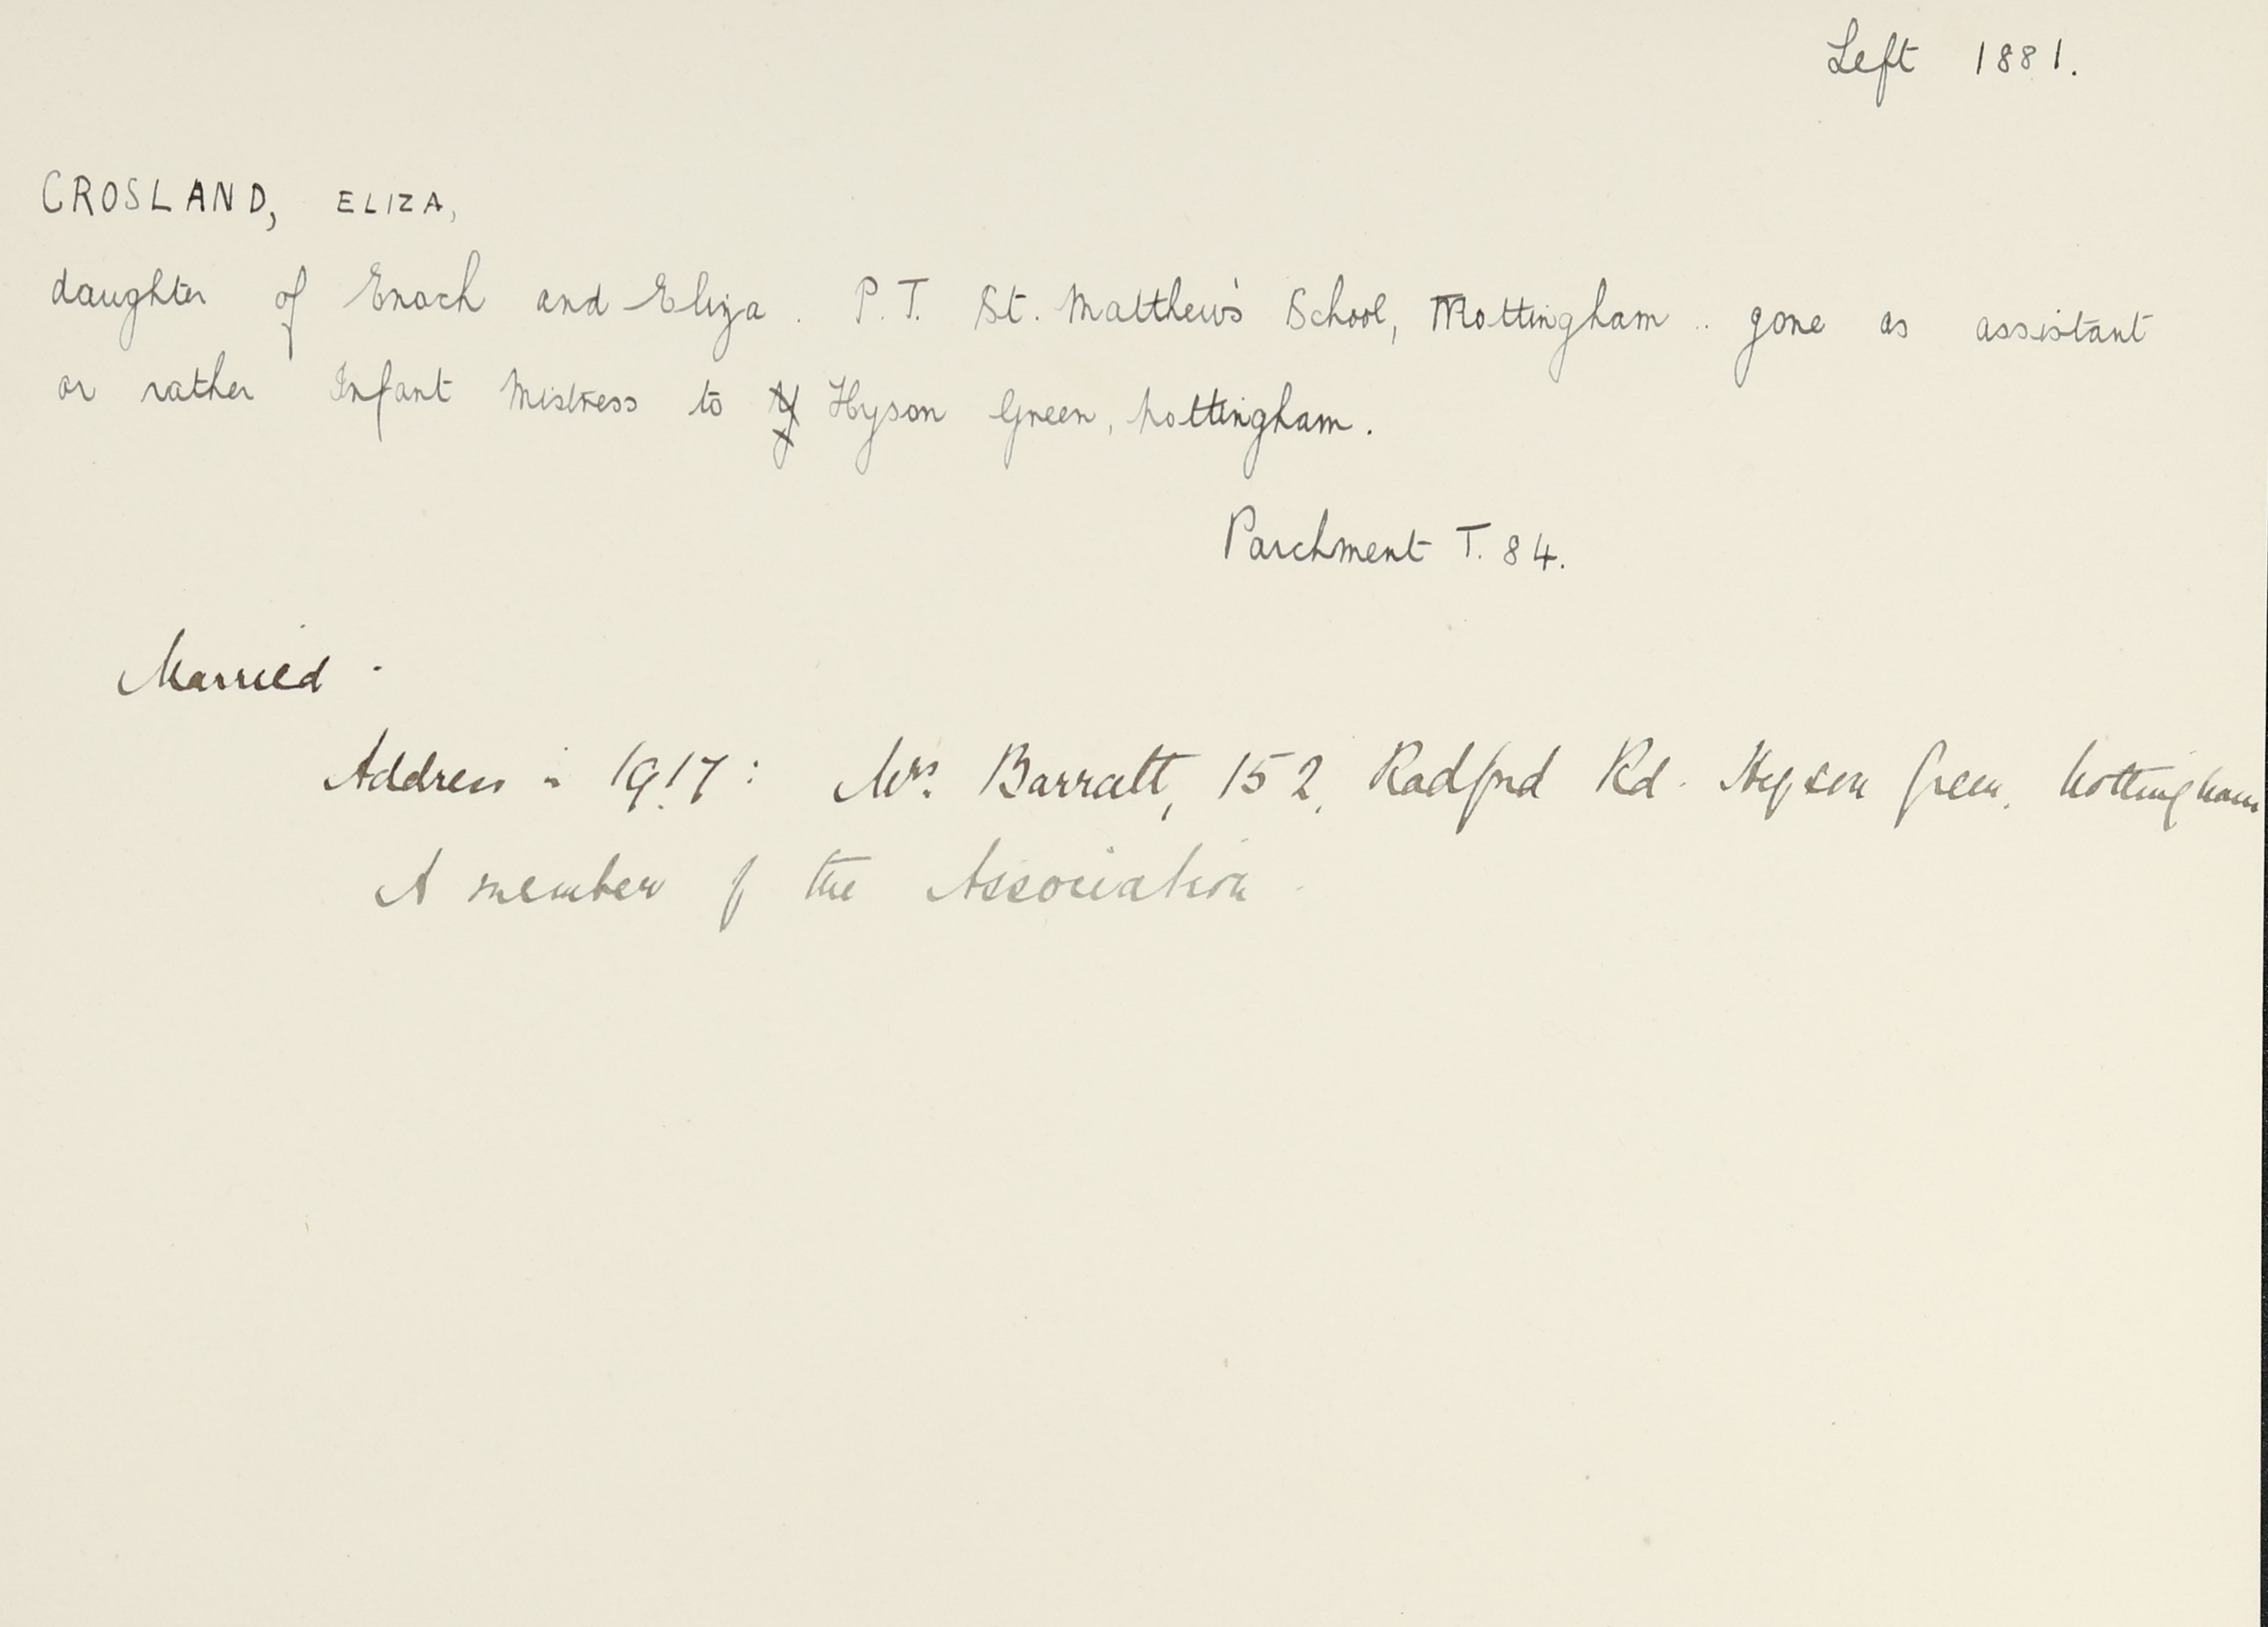 Left 1881.
CROSLAND, ELIZA,
daughter of Enoch and Eliza. P.T. St. Matthew's School, Nottingham.. gone as assistant
or rather Infant Mistress to Hyson Green, Nottingham.
Parchment T. 84.
Married.
Address in 1917: Mrs. Barratt, 152, Radford Rd. Hyson Green, Nottingham
A member of the Association.